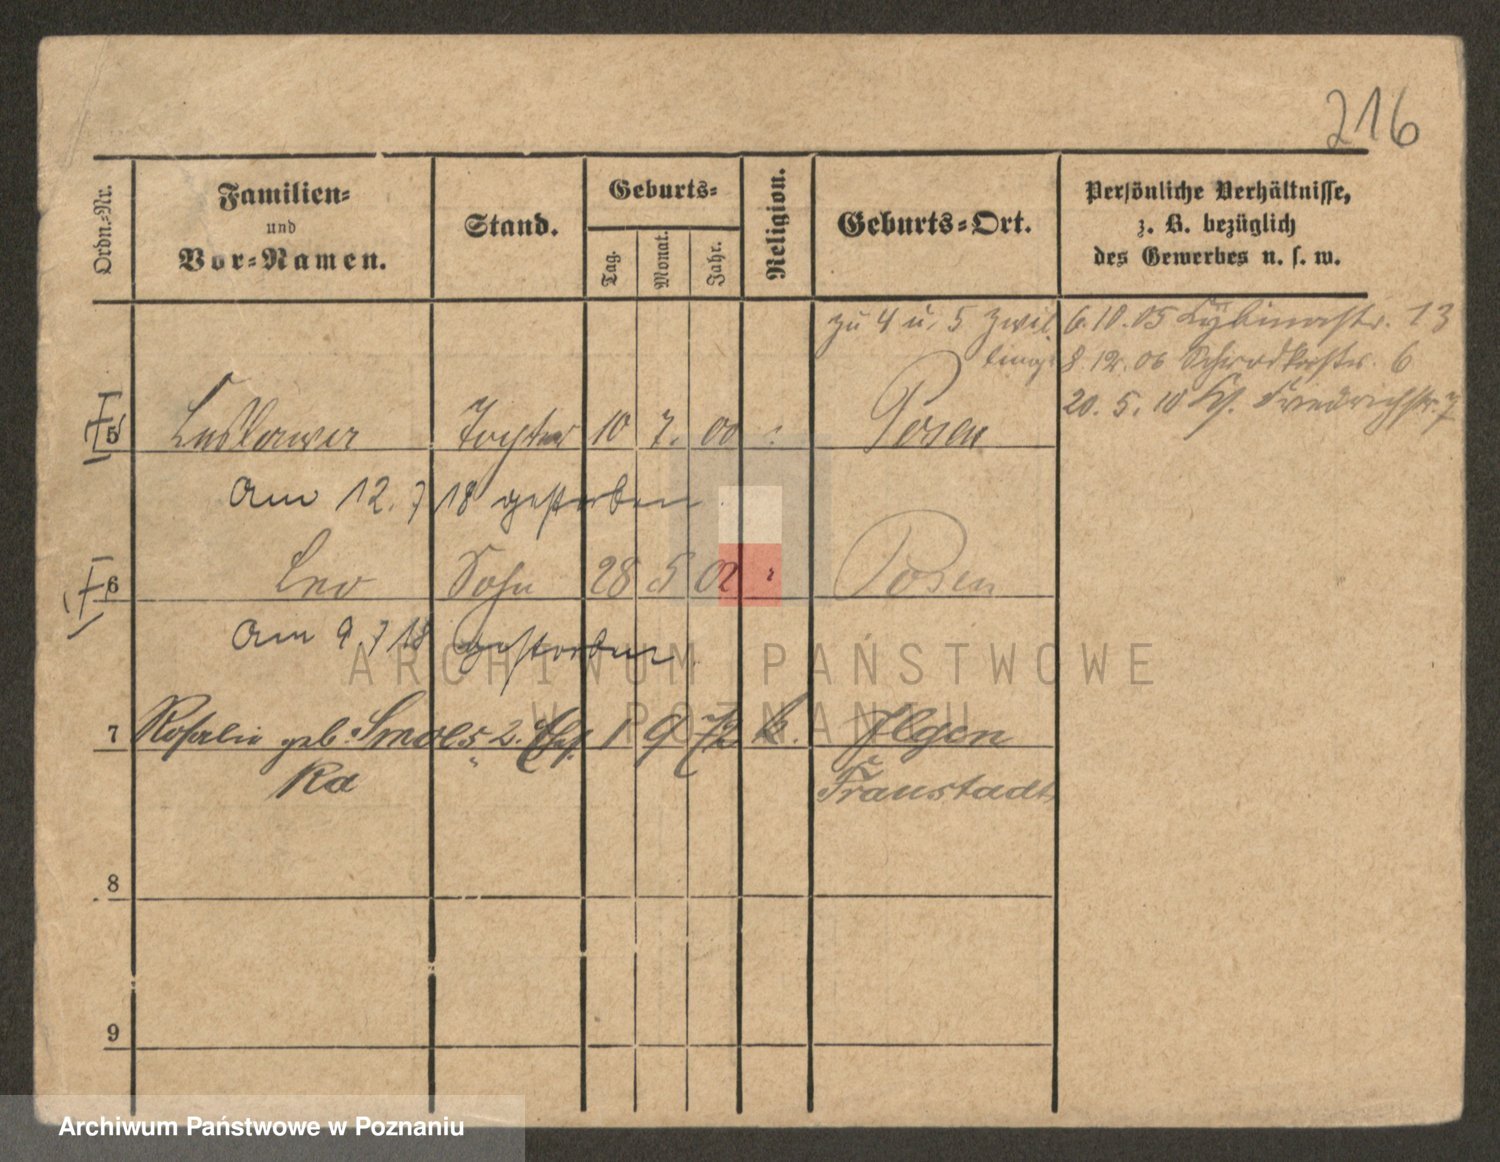 216
Ordn.-Nr.
Familien-
und
Vor-Namen.
Stand.
Geburts-
Tag.
Monat.
Jahr.
Religion.
Geburts-Ort.
Persönliche Verhältnisse,
z. B. bezüglich
des Gewerbes u. s. w.
zu 4 u. 5 Zwil
linge
6.10.05 13
8.12.06 6
20.5.10 Friedrichstr. 7
5 Tochter 10 7. 00 Posen
am 12. 7 18 gestorben.
6 Leo Sohn 28 5 02 Posen
am 9. 7 18 gestorben.
7 Rosalie geb. Smols 2. Ehef. 1 9 72 k. Ilgen
ka Fraustadt
8
9
ARCHIWUM PAŃSTWOWE
W POZNANIU
Archiwum Państwowe w Poznaniu